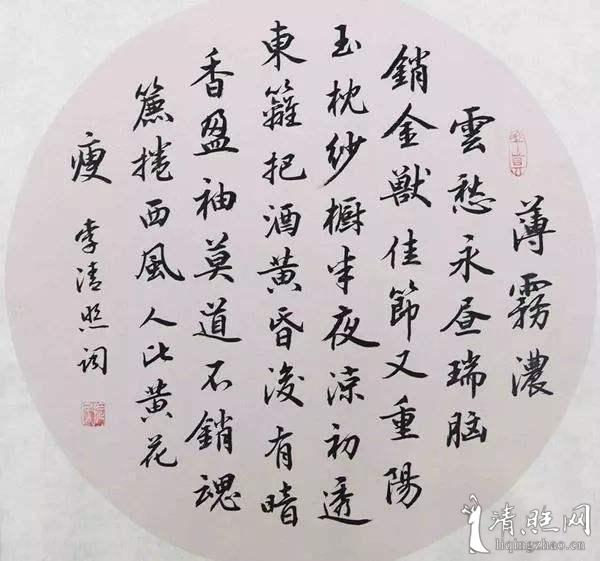 薄霧濃
雲愁永昼瑞脳
銷金獸佳節又重陽
玉枕紗櫥半夜涼初透
東籬把酒黄昏後有暗
香盈袖莫道不銷魂
簾捲西風人比黄花
瘦
李清照词
清照网
liqingzhao.cn